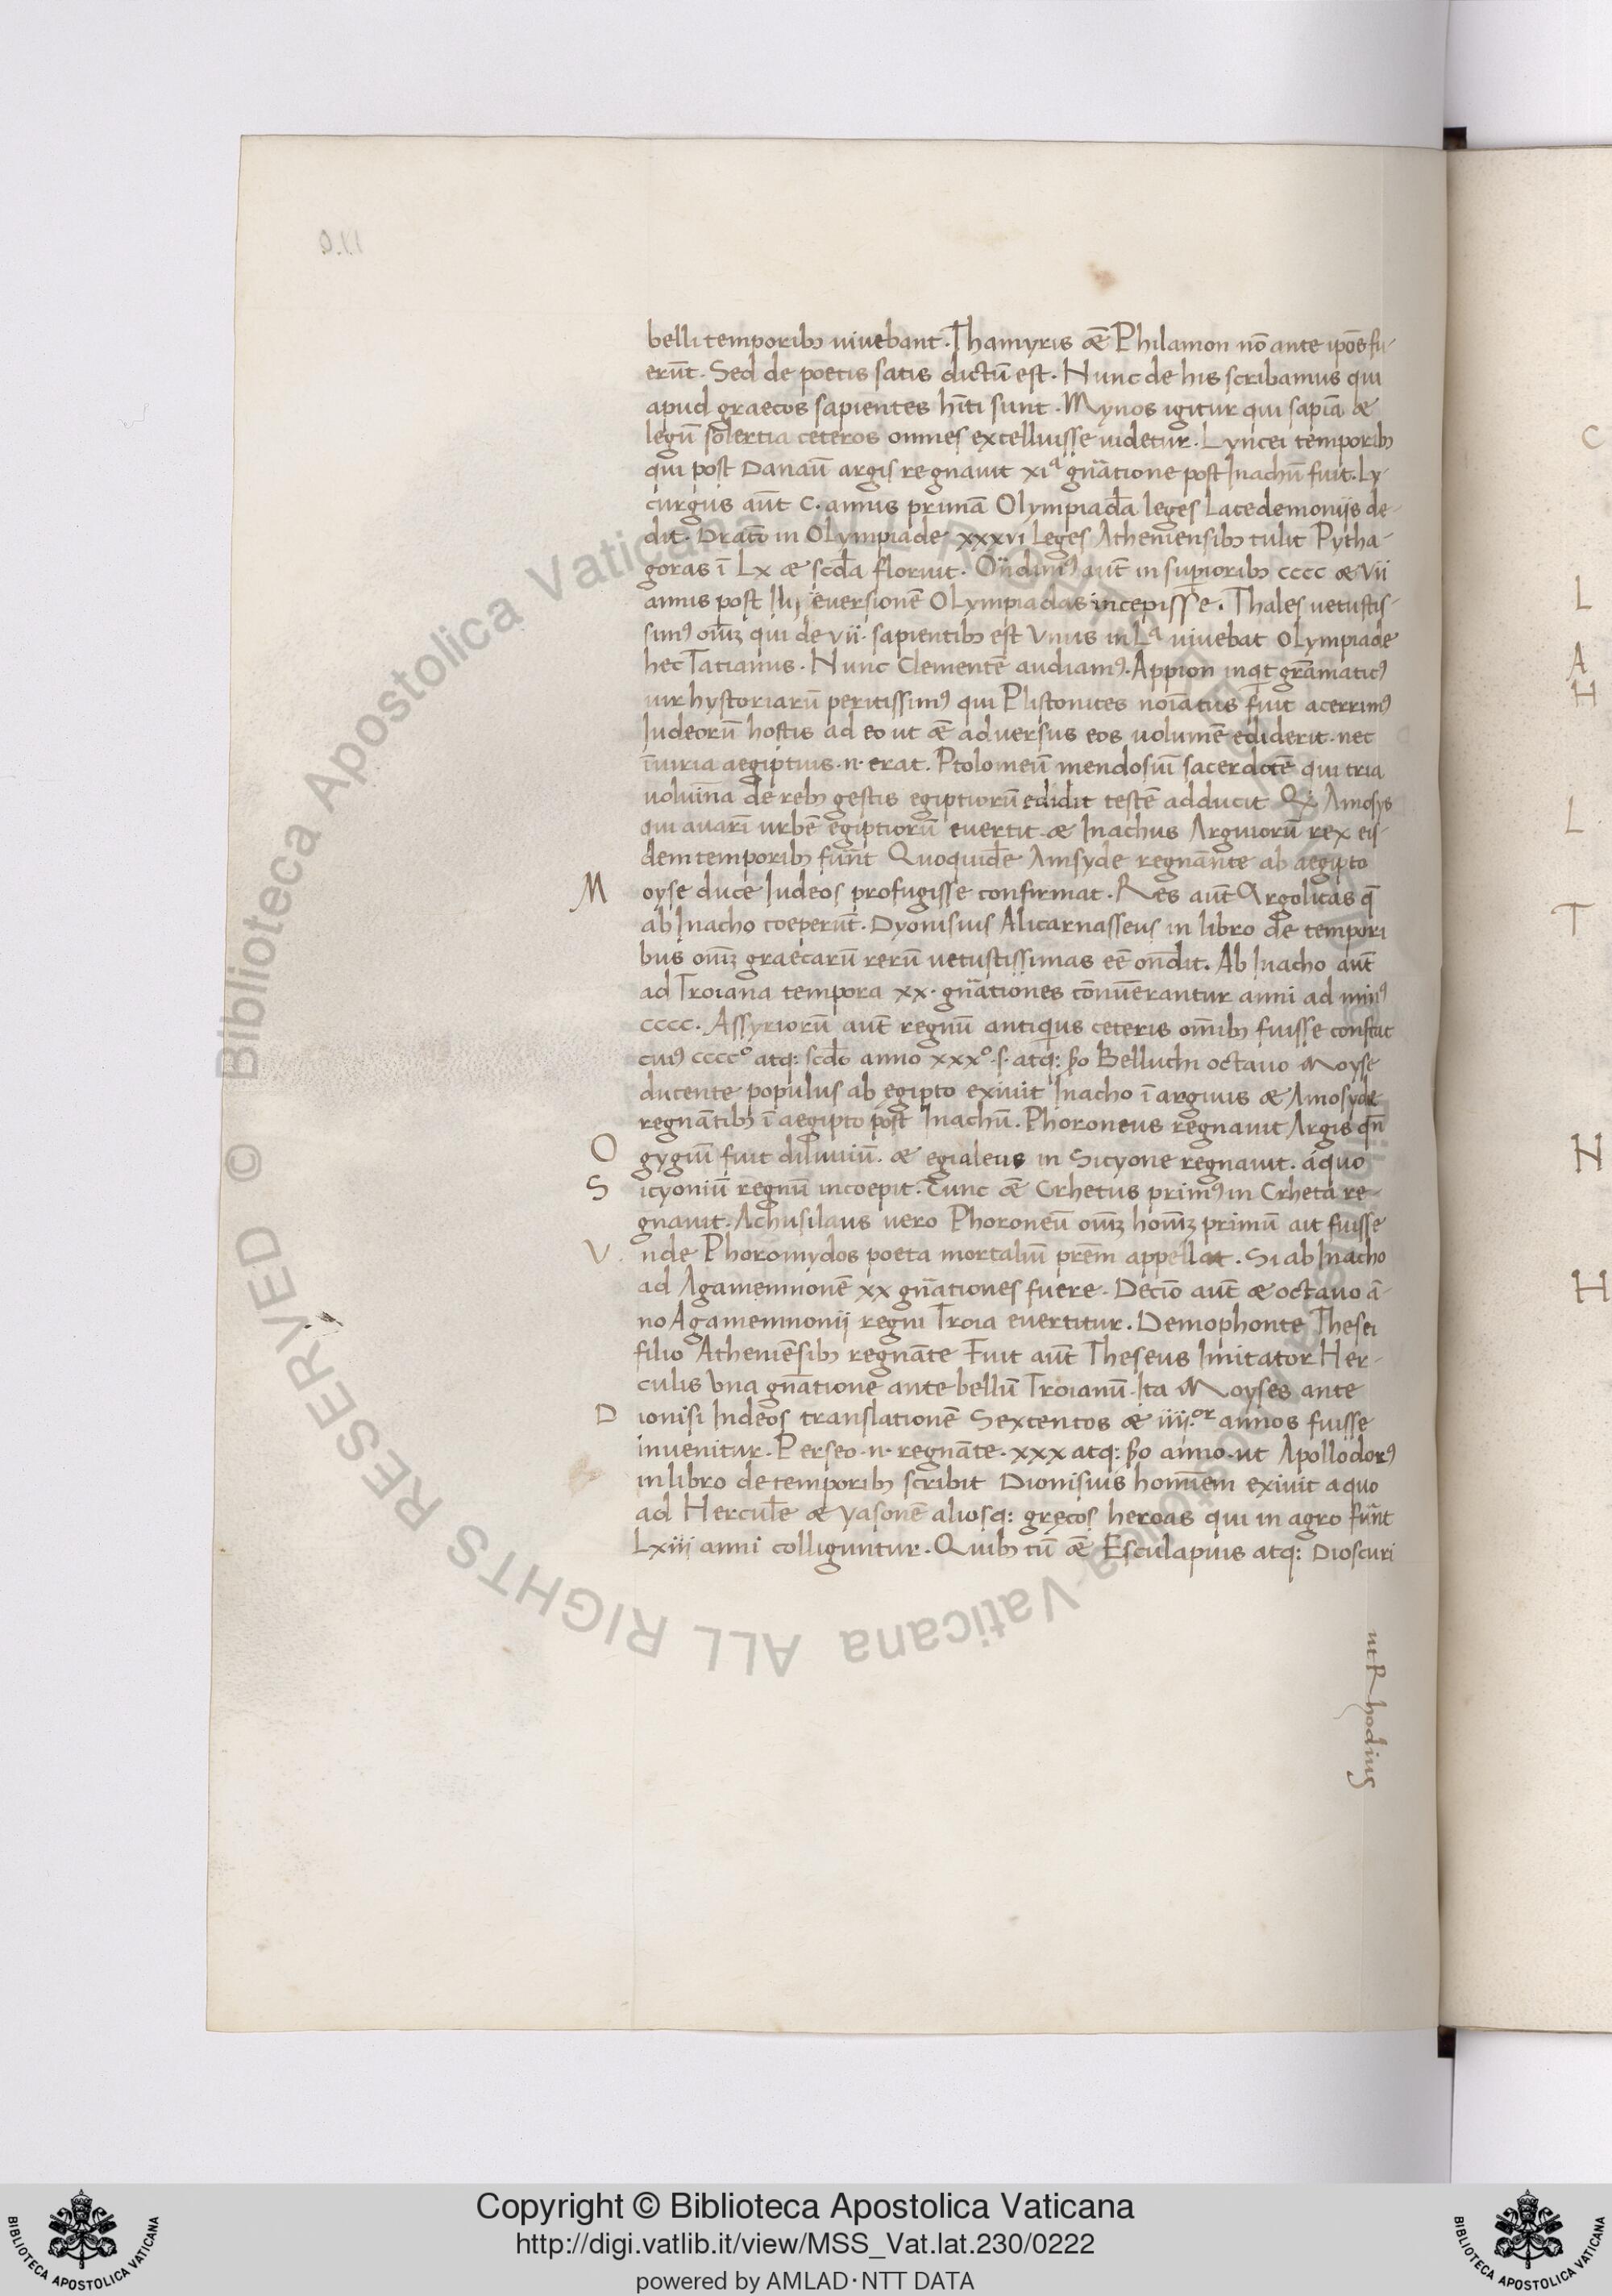 belli temporibꝫ uiuebant. Thamyris æ̃ Philamon nõ ante ip̃os fu-
erũt. Sed de poetis satis dictũ est. Nunc de his scribamus qui
apud graecos sapientes hĩti sunt. Mynos igitur qui sapĩa æ
legũ solertia ceteros omnes excelluisse uidetur. Lyncei temporibꝫ
qui post Danaũ argis regnauit xiª gñatione post Inachũ fuit. Ly-
curgus aũt c. annis primã Olympiada leges Lacedemoniis de-
dit. Draco in Olympiade xxxvi leges Atheniensibꝫ tulit Pytha-
goras ĩ Lx æ scd̃a floruit. aũt in supioribꝫ cccc æ vii
annis post euersionẽ OLympiadas incepisse. Thales uetustis-
simꝰ om̃iꝫ qui de vii. sapientibꝫ est Vnus in Lª uiuebat OLympiade
hec Tatianus. Nunc Clementẽ audiamꝰ. Appion inqt grãmaticꝰ
uir hystoriarũ peritissimꝰ qui Plistonices noĩatus fuit acerrimꝰ
Iudeorũ hostis ad eo ut æ̃ aduersus eos uolumẽ ediderit. nec
ĩuiria aegiptius .n. erat. Ptolomeũ mendosiũ sacerdotẽ qui tria
uolumĩa de rebꝫ gestis egiptiorũ edidit testẽ adducit Amosys
qui auarĩ urbẽ egiptiorũ euertit. æ Inachus Argiuorũ rex eis-
dem temporibꝫ fuer̃nt Quoquidẽ Amsyde regnante ab aegipto
Moyse duce Iudeos profugisse confirmat. Res aũt Argolicas q̃
ab Inacho coeperũt. Dyonisius Alicarnasseus in libro de tempori
bus om̃iꝫ graecarũ rerũ uetustissimas eẽ oñdit. Ab Inacho aũt
ad Troiana tempora xx. gñationes cõnũerantur anni ad minꝰ
cccc. Assyriorũ aũt regnũ antiquius ceteris om̃ibꝫ fuisse constat
cuiꝰ cccc° atq: scd̃o anno xxx° .s. atq: s̃o Belluchi octauo Moyse
ducente populus ab egipto exiuit Inacho ĩ argiuis æ Amosyde
regnãtibꝫ ĩ aegipto post Inachũ. Phoroneus regnauit Argis qñ
Ogygiũ fuit diluuiũ. æ egialeus in Sicyone regnauit. a quo
Sicyoniũ regnũ incoepit. Tunc æ̃ Crhetus primꝰ in Crheta re-
gnauit. Achusilaus uero Phoroneũ om̃iꝫ homĩꝫ primũ ait fuisse
Vnde Phoromydos poeta mortaliũ prẽm appellat. Si ab Inacho
ad Agamemnonẽ xx gñationes fuere. Decĩo aũt æ octauo ã-
no Agamemnonii regni Troia euertitur. Demophonte Thesei
filio Atheniẽsibꝫ regnãte Fuit aũt Theseus Imitator Her-
culis Vna gñatione ante bellũ Troianũ. Ita Moyses ante
Dionisi Indeos translationẽ Sexcentos æ iiii.or annos fuisse
inuenitur. Perseo .n. regnãte. xxx atq: s̃o anno. ut Apollodorꝰ
in libro de temporibꝫ scribit Dionisius homĩem exiuit a quo
ad Herculẽ æ yasonẽ aliosq: gręcos heroas qui in agro fũnt
Lxiii anni colliguntur. Quibꝫ cũ æ̃ Esculapius atq: Dioscuri
ut Rhodius
C
L
A
H
L
T
N
H
© Biblioteca Apostolica Vaticana ALL RIGHTS RESERVED
Copyright © Biblioteca Apostolica Vaticana
http://digi.vatlib.it/view/MSS_Vat.lat.230/0222
powered by AMLAD·NTT DATA
BIBLIOTECA APOSTOLICA VATICANA
BIBLIOTECA APOSTOLICA VATICANA